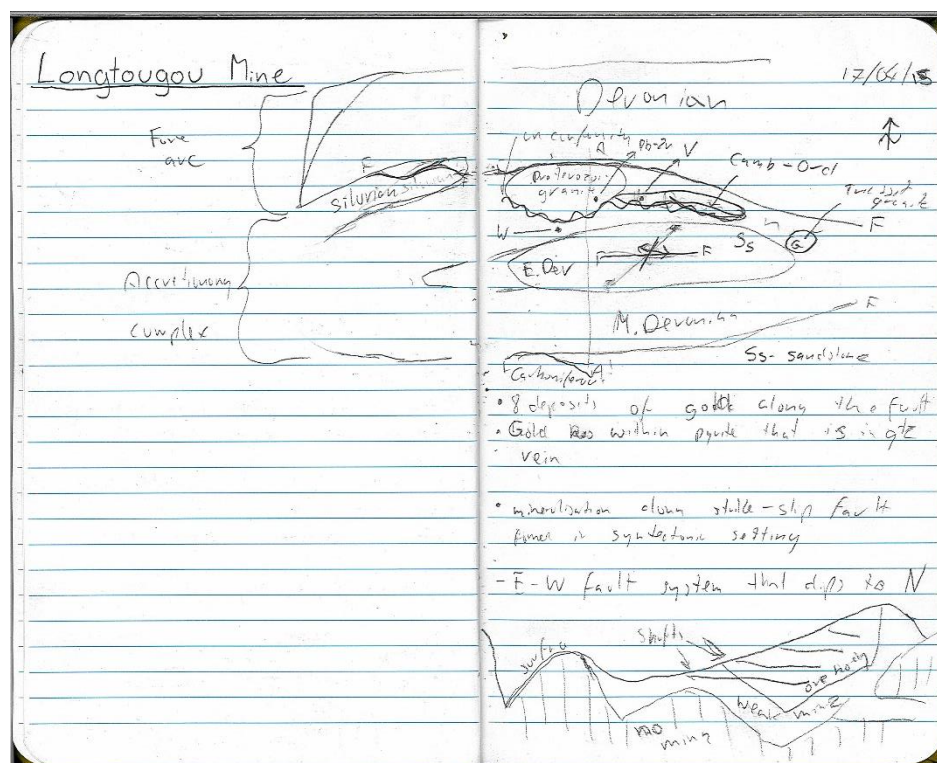 Longtougou Mine
Fore
arc
F
Silurian
Accretionary
complex
17/04/15
Devonian
unconformity
A
Pb-Zn
V
Camb-Ord
Proterozoic
granite
W
F
Ss
G
F
F
E. Dev
M. Devonian
F
Ss - sandstone
Carboniferous
A'
• 8 deposits of gold along the fault
• Gold within pyrite that is in qtz
vein
• mineralisation along strike-slip fault
in syntectonic setting
- E-W fault system that dips to N
surface
Shafts
ore body
weak minz
no
minz